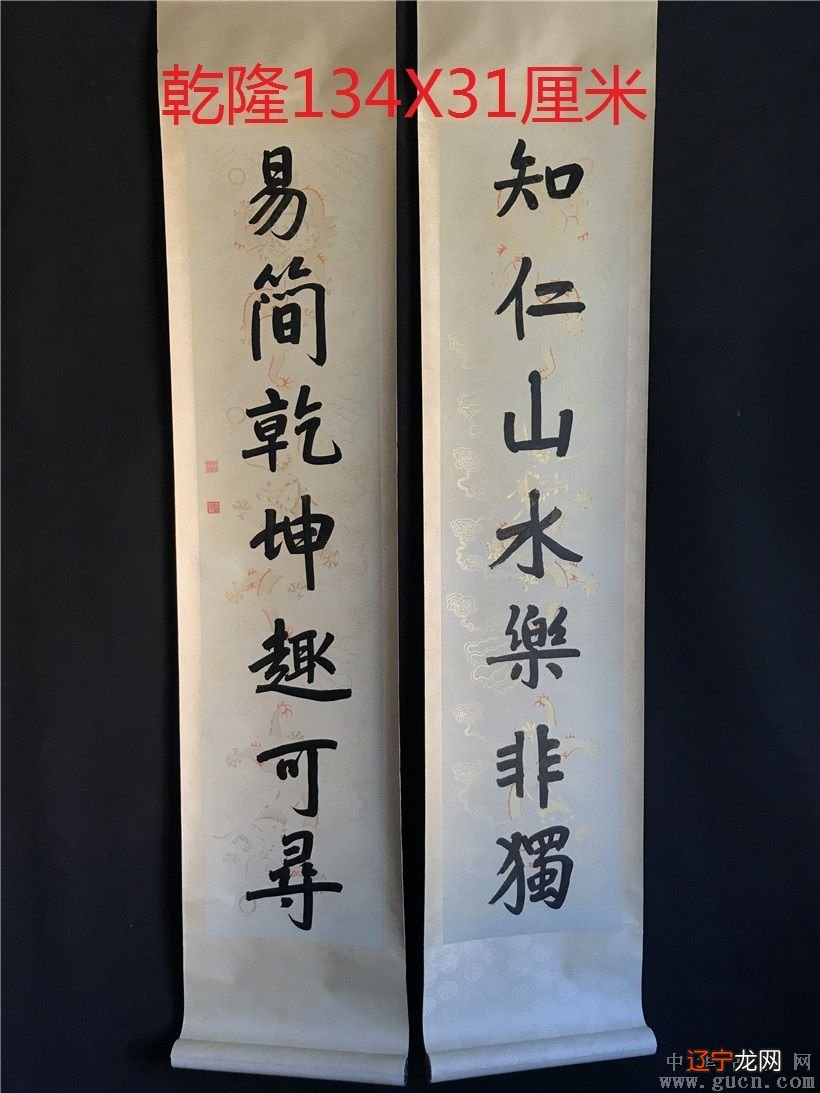 乾隆134X31厘米
知仁山水樂非獨
易簡乾坤趣可尋
辽宁龙网
中华 网
www.gucn.com